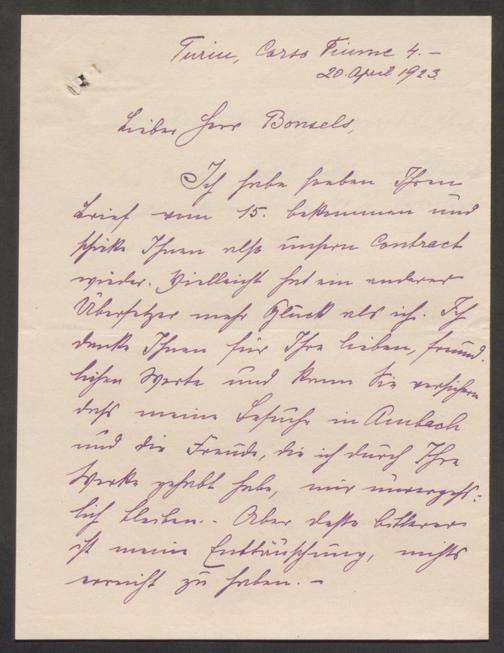 Turin, Corso Fiume 4. –
20. April 1923.
Lieber Herr Bonsels,
Ich habe soeben Ihren
Brief vom 15. bekommen und
schicke Ihnen also unsern Contract
wieder. Vielleicht hat ein anderer
Übersetzer mehr Glück als ich. Ich
danke Ihnen für Ihre lieben, freund-
lichen Worte und kann Sie versichern
dass meine Besuche in Ambach
und die Freude, die ich durch Ihre
Werke gehabt habe, mir unvergess-
lich bleiben. – Aber desto bitterer
ist meine Enttäuschung, nichts
erreicht zu haben. –